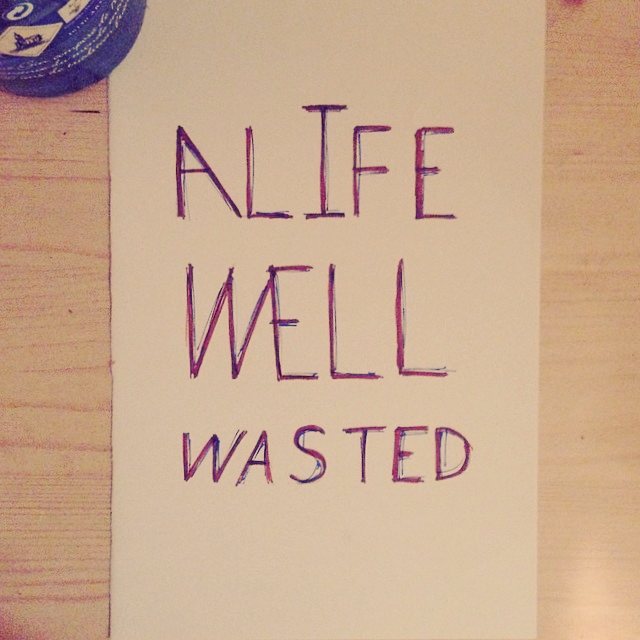 A LIFE
WELL
WASTED